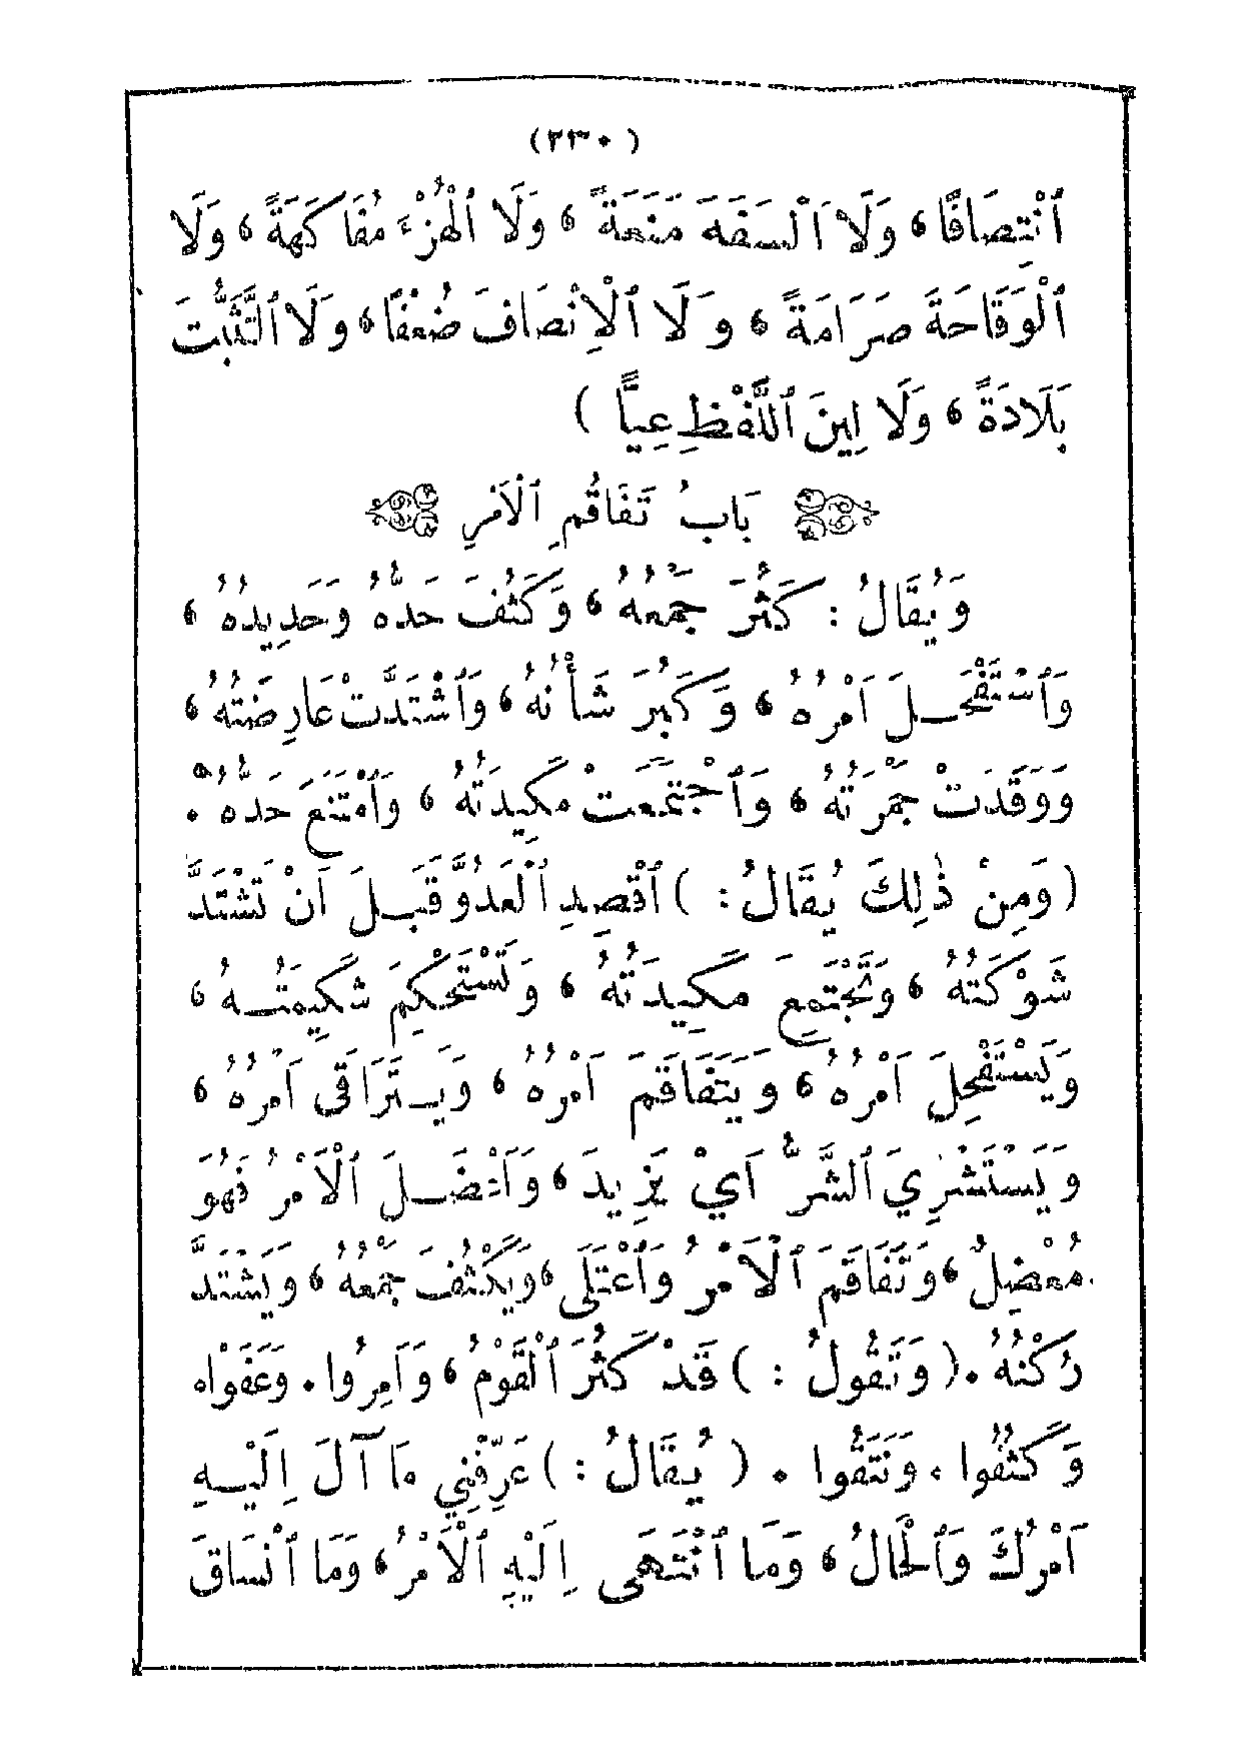 (٢٣٠)
ٱنْتِصَافًا، وَلَا ٱلسَّفَهَ مَنَعَةً، وَلَا ٱلْهُزْءَ مُفَاكَهَةً، وَلَا
ٱلْوَقَاحَةَ صَرَامَةً، وَلَا ٱلْإِنْصَافَ ضُعْفًا، وَلَا ٱلتَّثَبُّتَ
بَلَادَةً، وَلَا لِينَ ٱللَّفْظِ عِيًّا )
بَابُ تَفَاقُمِ ٱلْأَمْرِ
وَيُقَالُ : كَثُرَ جَمْعُهُ، وَكَثُفَ حَدُّهُ وَحَدِيدُهُ،
وَٱسْتَفْحَلَ أَمْرُهُ، وَكَبُرَ شَأْنُهُ، وَٱشْتَدَّتْ عَارِضَتُهُ،
وَوَقَدَتْ جَمْرَتُهُ، وَٱجْتَمَعَتْ مَكِيدَتُهُ، وَٱمْتَنَعَ حَدُّهُ.
( وَمِنْ ذٰلِكَ يُقَالُ : ) ٱقْصِدِ ٱلْعَدُوَّ قَبْلَ أَنْ تَشْتَدَّ
شَوْكَتُهُ، وَتَجْتَمِعَ مَكِيدَتُهُ، وَتَسْتَحْكِمَ شَكِيمَتُهُ،
وَيَسْتَفْحِلَ أَمْرُهُ، وَيَتَفَاقَمَ أَمْرُهُ، وَيَتَرَاقَى أَمْرُهُ،
وَيَسْتَشْرِيَ ٱلشَّرُّ أَيْ يَزِيدَ، وَأَعْضَلَ ٱلْأَمْرُ فَهُوَ
مُعْضِلٌ، وَتَفَاقَمَ ٱلْأَمْرُ وَٱعْتَلَى، وَيَكْثُفَ جَمْعُهُ، وَيَشْتَدَّ
رُكْنُهُ. ( وَتَقُولُ : ) قَدْ كَثُرَ ٱلْقَوْمُ، وَأَمِرُوا. وَعَفَوْا.
وَكَثُفُوا. وَنَتَقُوا. ( يُقَالُ : ) عَرِّفْنِي مَا آلَ إِلَيْهِ
أَمْرُكَ وَٱلْحَالُ، وَمَا ٱنْتَهَى إِلَيْهِ ٱلْأَمْرُ، وَمَا ٱنْسَاقَ